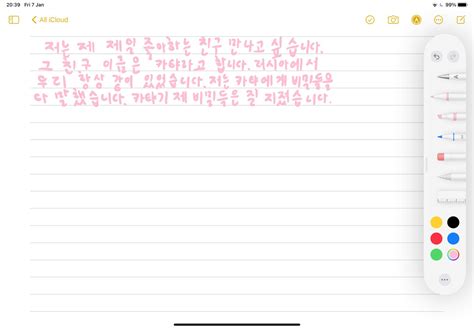 20:39 Fri 7 Jan
99%
All iCloud
저는 제 제일 좋아하는 친구 만나고 싶습니다.
그 친구 이름은 카탸라고 합니다. 러시아에서
우리 항상 같이 있었습니다. 저는 카탸에게 비밀들을
다 말했습니다. 카탸가 제 비밀들은 잘 지켰습니다.